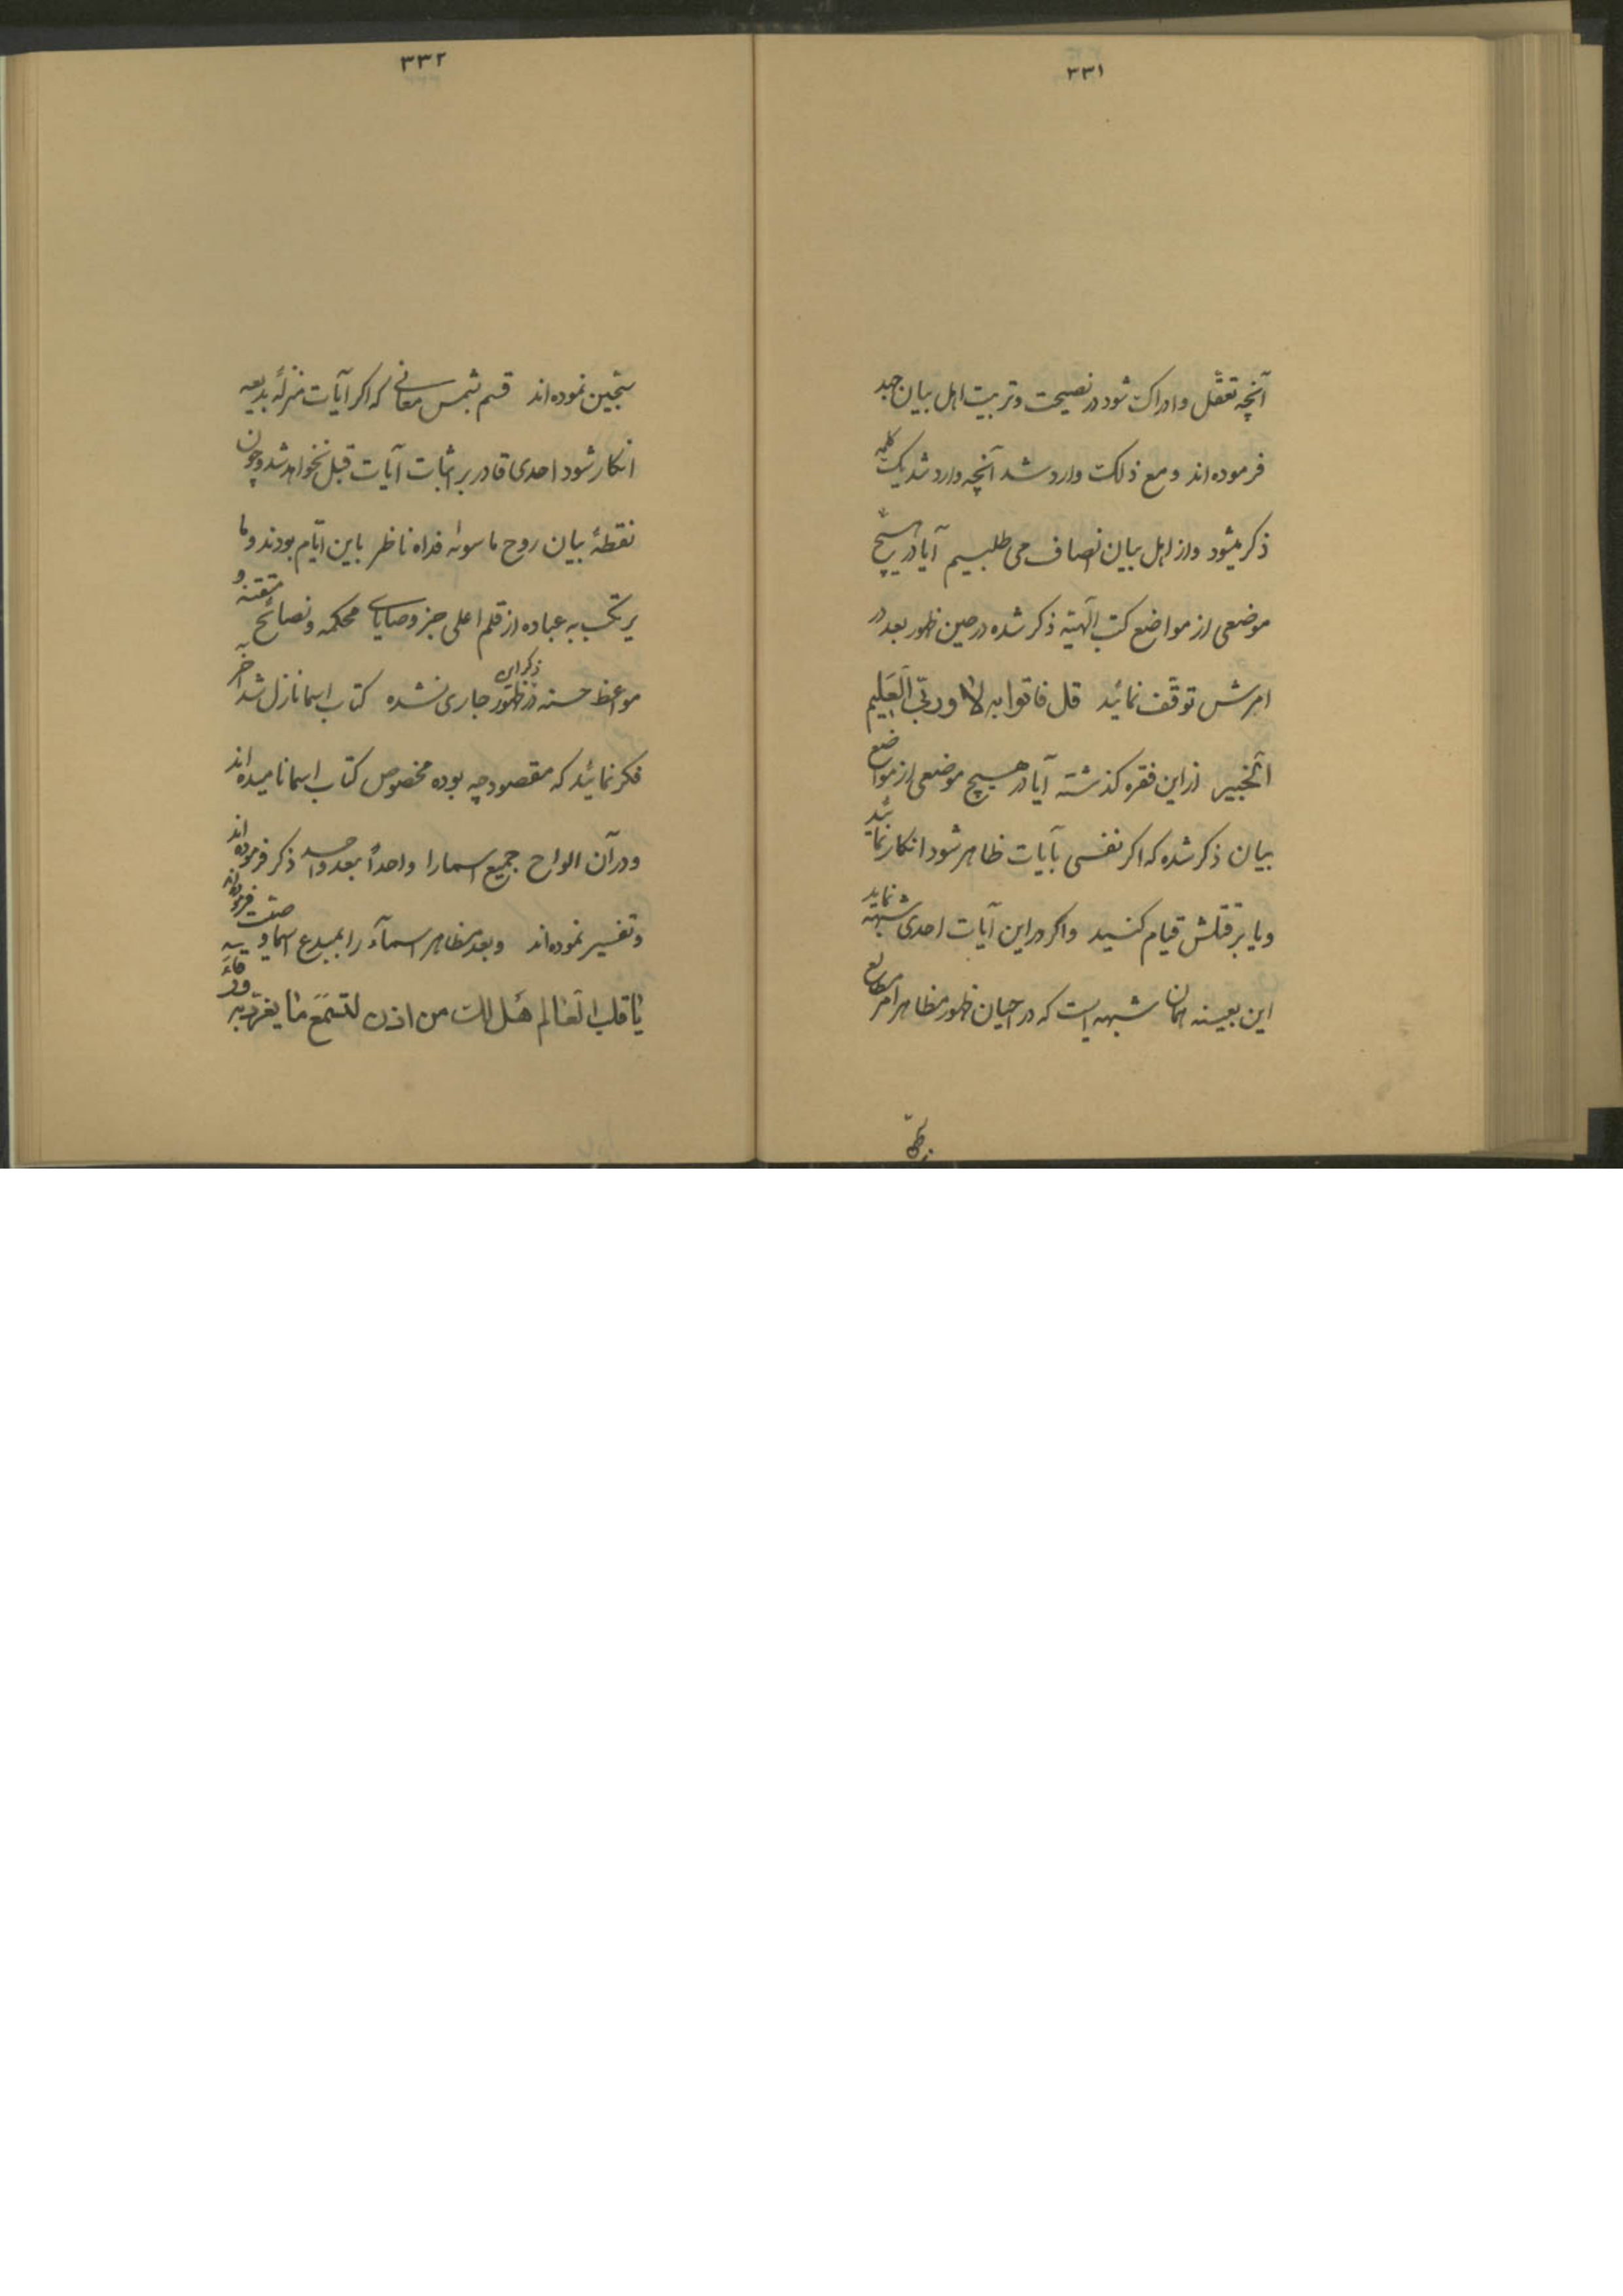 ۳۳۱
آنچه تعقّل و ادراک شود در نصیحت و تربیت اهل بیان جهد
فرموده‌اند و مع ذلک وارد شد آنچه وارد شد یک کلمه
ذکر میشود و از اهل بیان انصاف می طلبیم آیا در هیچ
موضعی از مواضع کتب الهیّه ذکر شده در حین ظهور بعد در
امرش توقّف نمائید قل فاتوا به لا و ربّی العلیم
الخبیر از این فقره گذشته آیا در هیچ موضعی از مواضع
بیان ذکر شده که اگر نفسی بآیات ظاهر شود انکار نمائید
و یا بر قتلش قیام کنید و اگر در این آیات احدی شبهه نماید
این بعینه همان شبهه ایست که در احیان ظهور مظاهر امر
۳۳۲
نموده‌اند قسم بشمس معانی که اگر آیات منزلهٔ بدیعه
انکار شود احدی قادر بر اثبات آیات قبل نخواهد شد و چون
نقطهٔ بیان روح ما سواه فداه ناظر باین ایّام بودند و ما
یرتکب به عباده از قلم اعلی جز وصایای محکمه و نصائح متقنه و
مواعظ حسنه در ذکر این ظهور جاری نشده کتاب اسما نازل شد آخر
فکر نمائید که مقصود چه بوده مخصوص کتاب اسما نامیده‌اند
و در آن الواح جمیع اسما را واحداً بعد واحد ذکر فرموده‌اند
و تفسیر نموده‌اند و بعد مظاهر اسمآء را بمبدع اسما وصیّت فرموده‌اند
یا قلب العالم هَل لک من اذن لتسمَعَ ما یغرّد به ورقاء